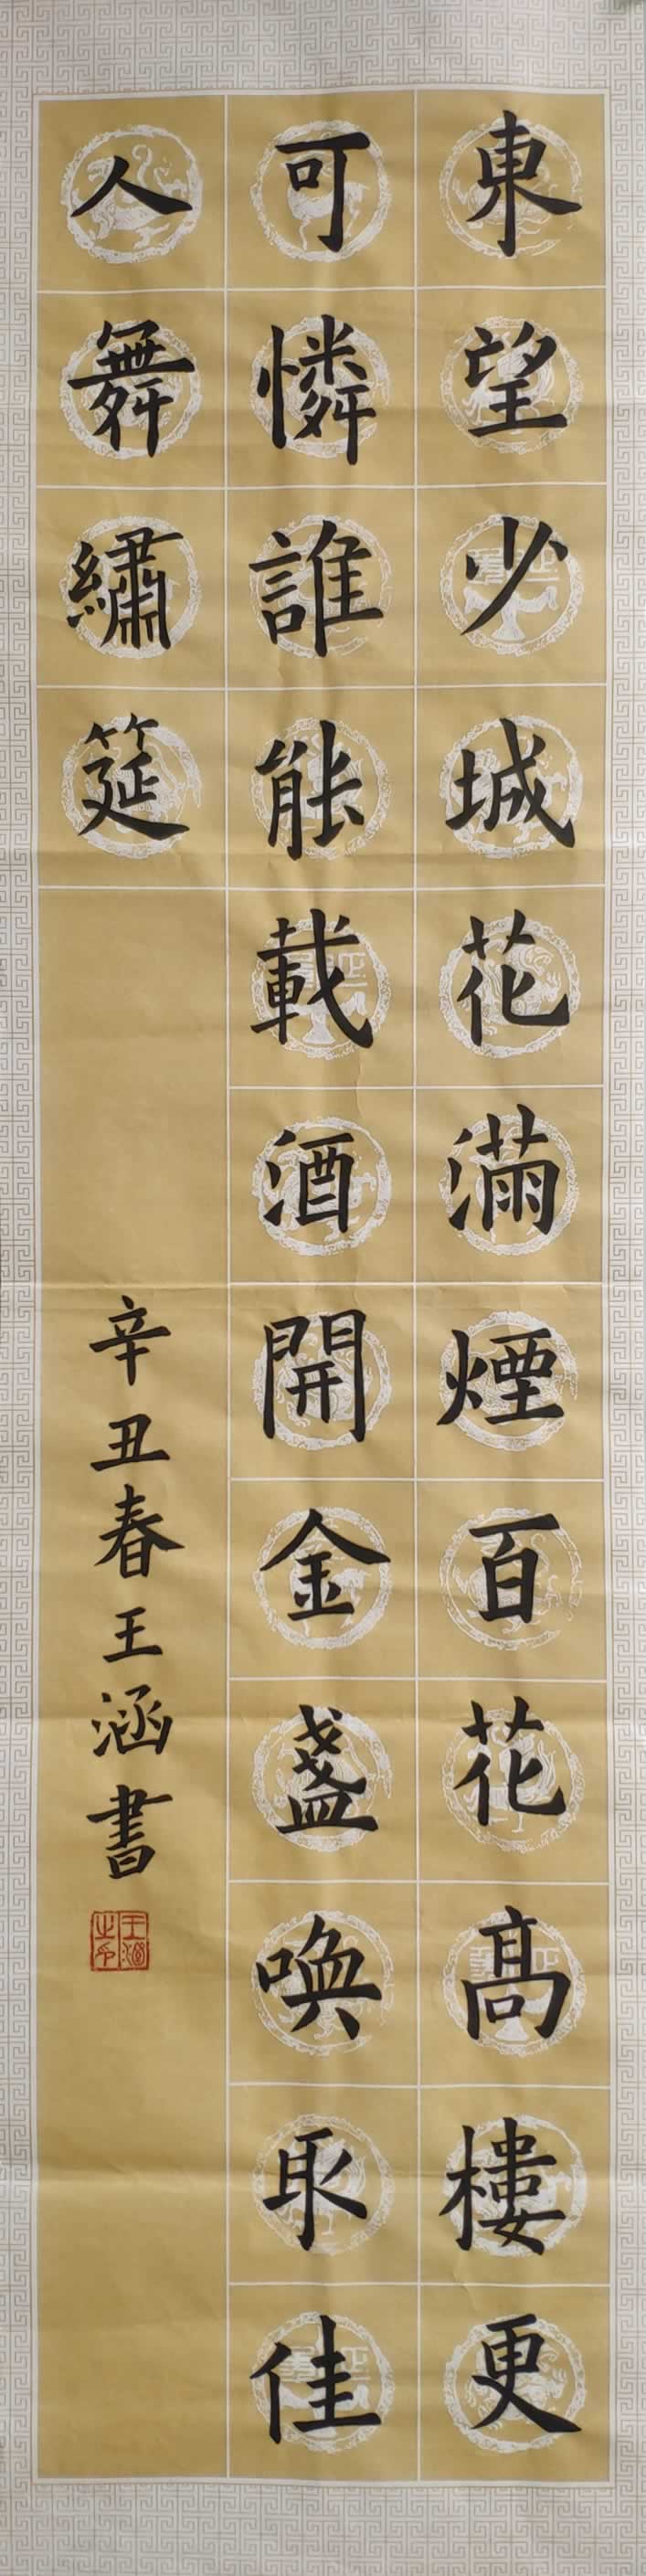 東望少城花滿煙百花高樓更
可憐誰能載酒開金盞喚取佳
人舞繡筵
辛丑春王涵書
王涵之印